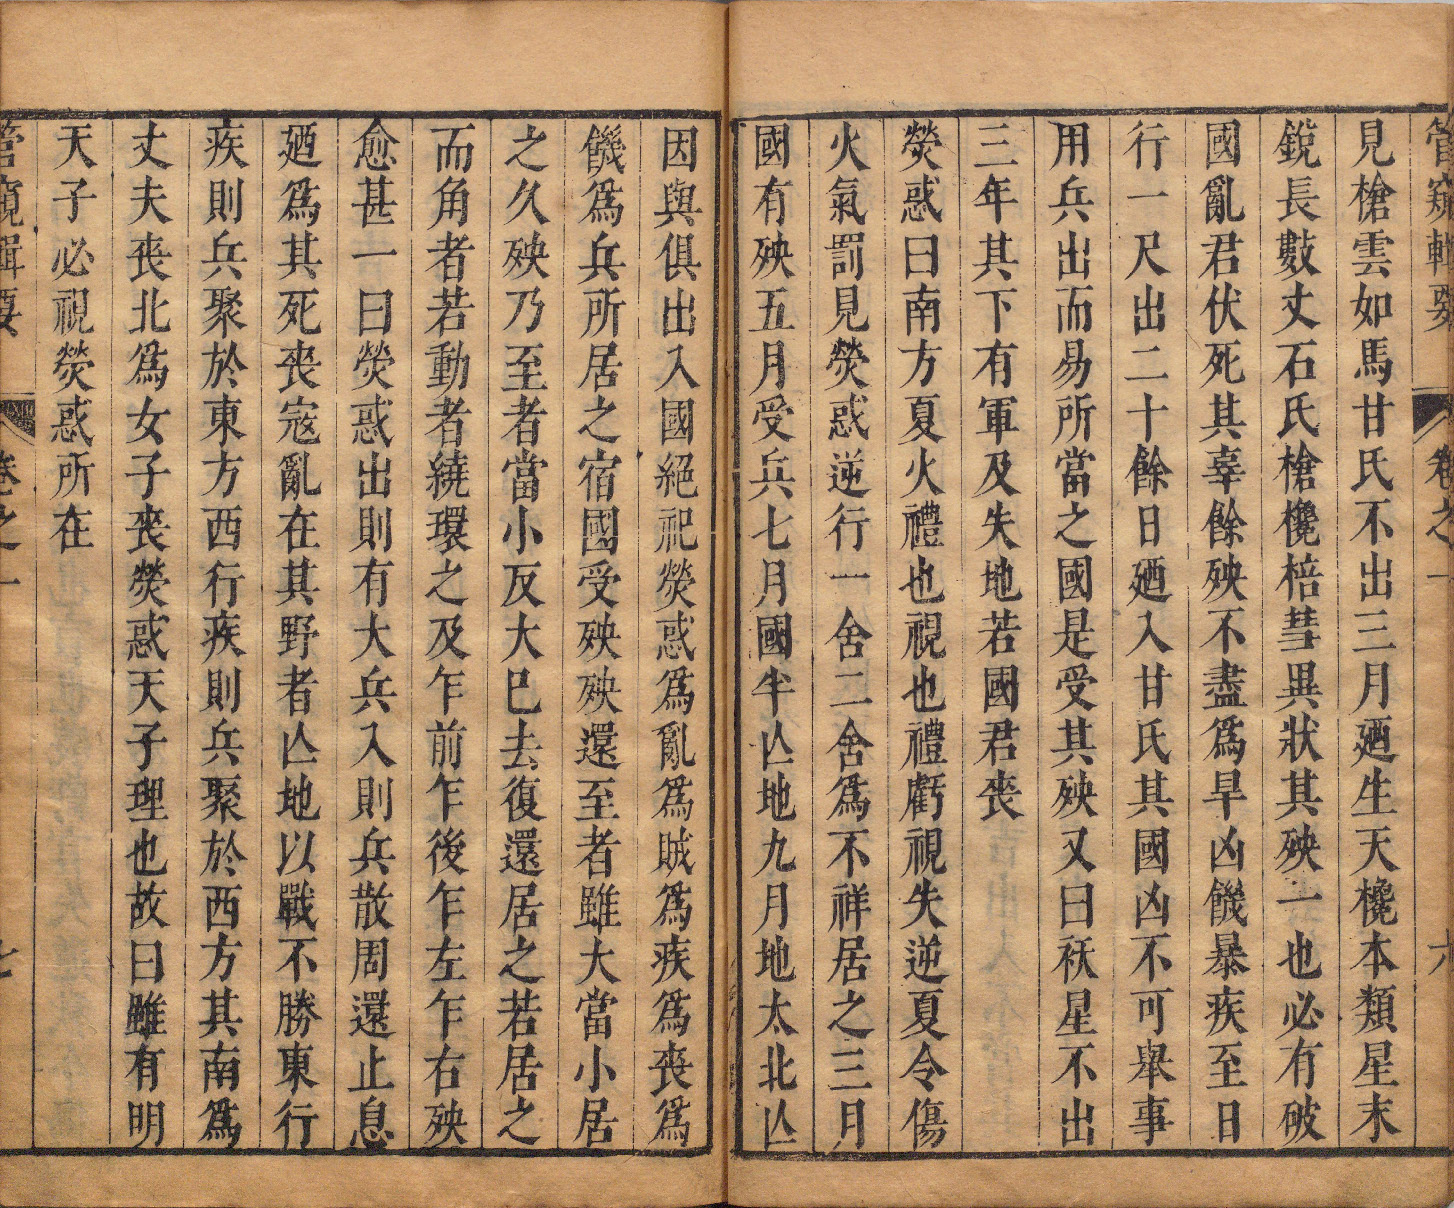 管窺輯要 卷之一 六
見槍雲如馬甘氏不出三月廼生天欃本類星末
銳長數丈石氏槍欃棓彗異狀其殃一也必有破
國亂君伏死其辜餘殃不盡爲旱凶饑暴疾至日
行一尺出二十餘日廼入甘氏其國凶不可舉事
用兵出而易所當之國是受其殃又曰祅星不出
三年其下有軍及失地若國君喪
熒惑曰南方夏火禮也視也禮虧視失逆夏令傷
火氣罰見熒惑逆行一舍二舍爲不祥居之三月
國有殃五月受兵七月國半亾地九月地太北亾
因與俱出入國絕祀熒惑爲亂爲賊爲疾爲喪爲
饑爲兵所居之宿國受殃殃還至者雖大當小居
之久殃乃至者當小反大巳去復還居之若居之
而角者若動者繞環之及乍前乍後乍左乍右殃
愈甚一曰熒惑出則有大兵入則兵散周還止息
廼爲其死喪寇亂在其野者亾地以戰不勝東行
疾則兵聚於東方西行疾則兵聚於西方其南爲
丈夫喪北爲女子喪熒惑天子理也故曰雖有明
天子必視熒惑所在
管窺輯要 卷之一 七